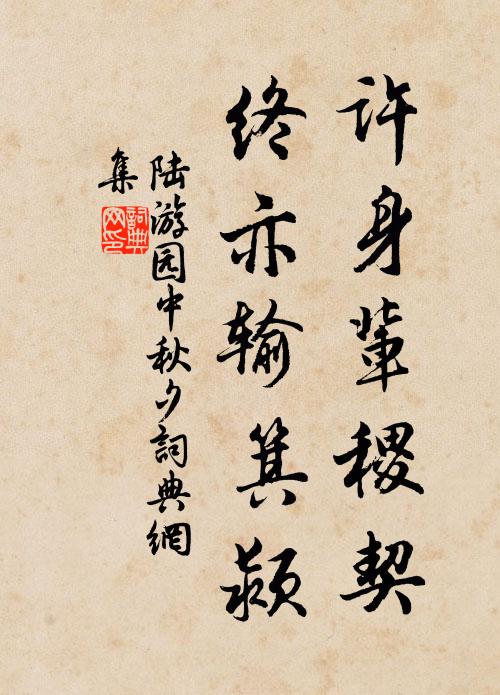 许身辈稷契
终亦输箕颍
陆游园中秋夕詞典網
集
詞典网印